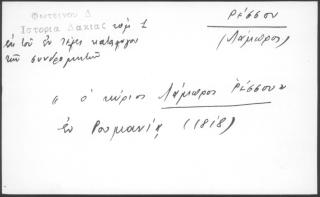 Φωτεινου Δ
Ιστορια Δακιας τομ 1
ἐκ τοῦ ἐν τέλει καταλόγου
τῶν συνδρομητῶν
ΡΕΣΣΟΥ
(Λάμπρος)
" ὁ κύριος Λάμπρος Ρέσσου "
ἐν Ρουμανίᾳ (1818)